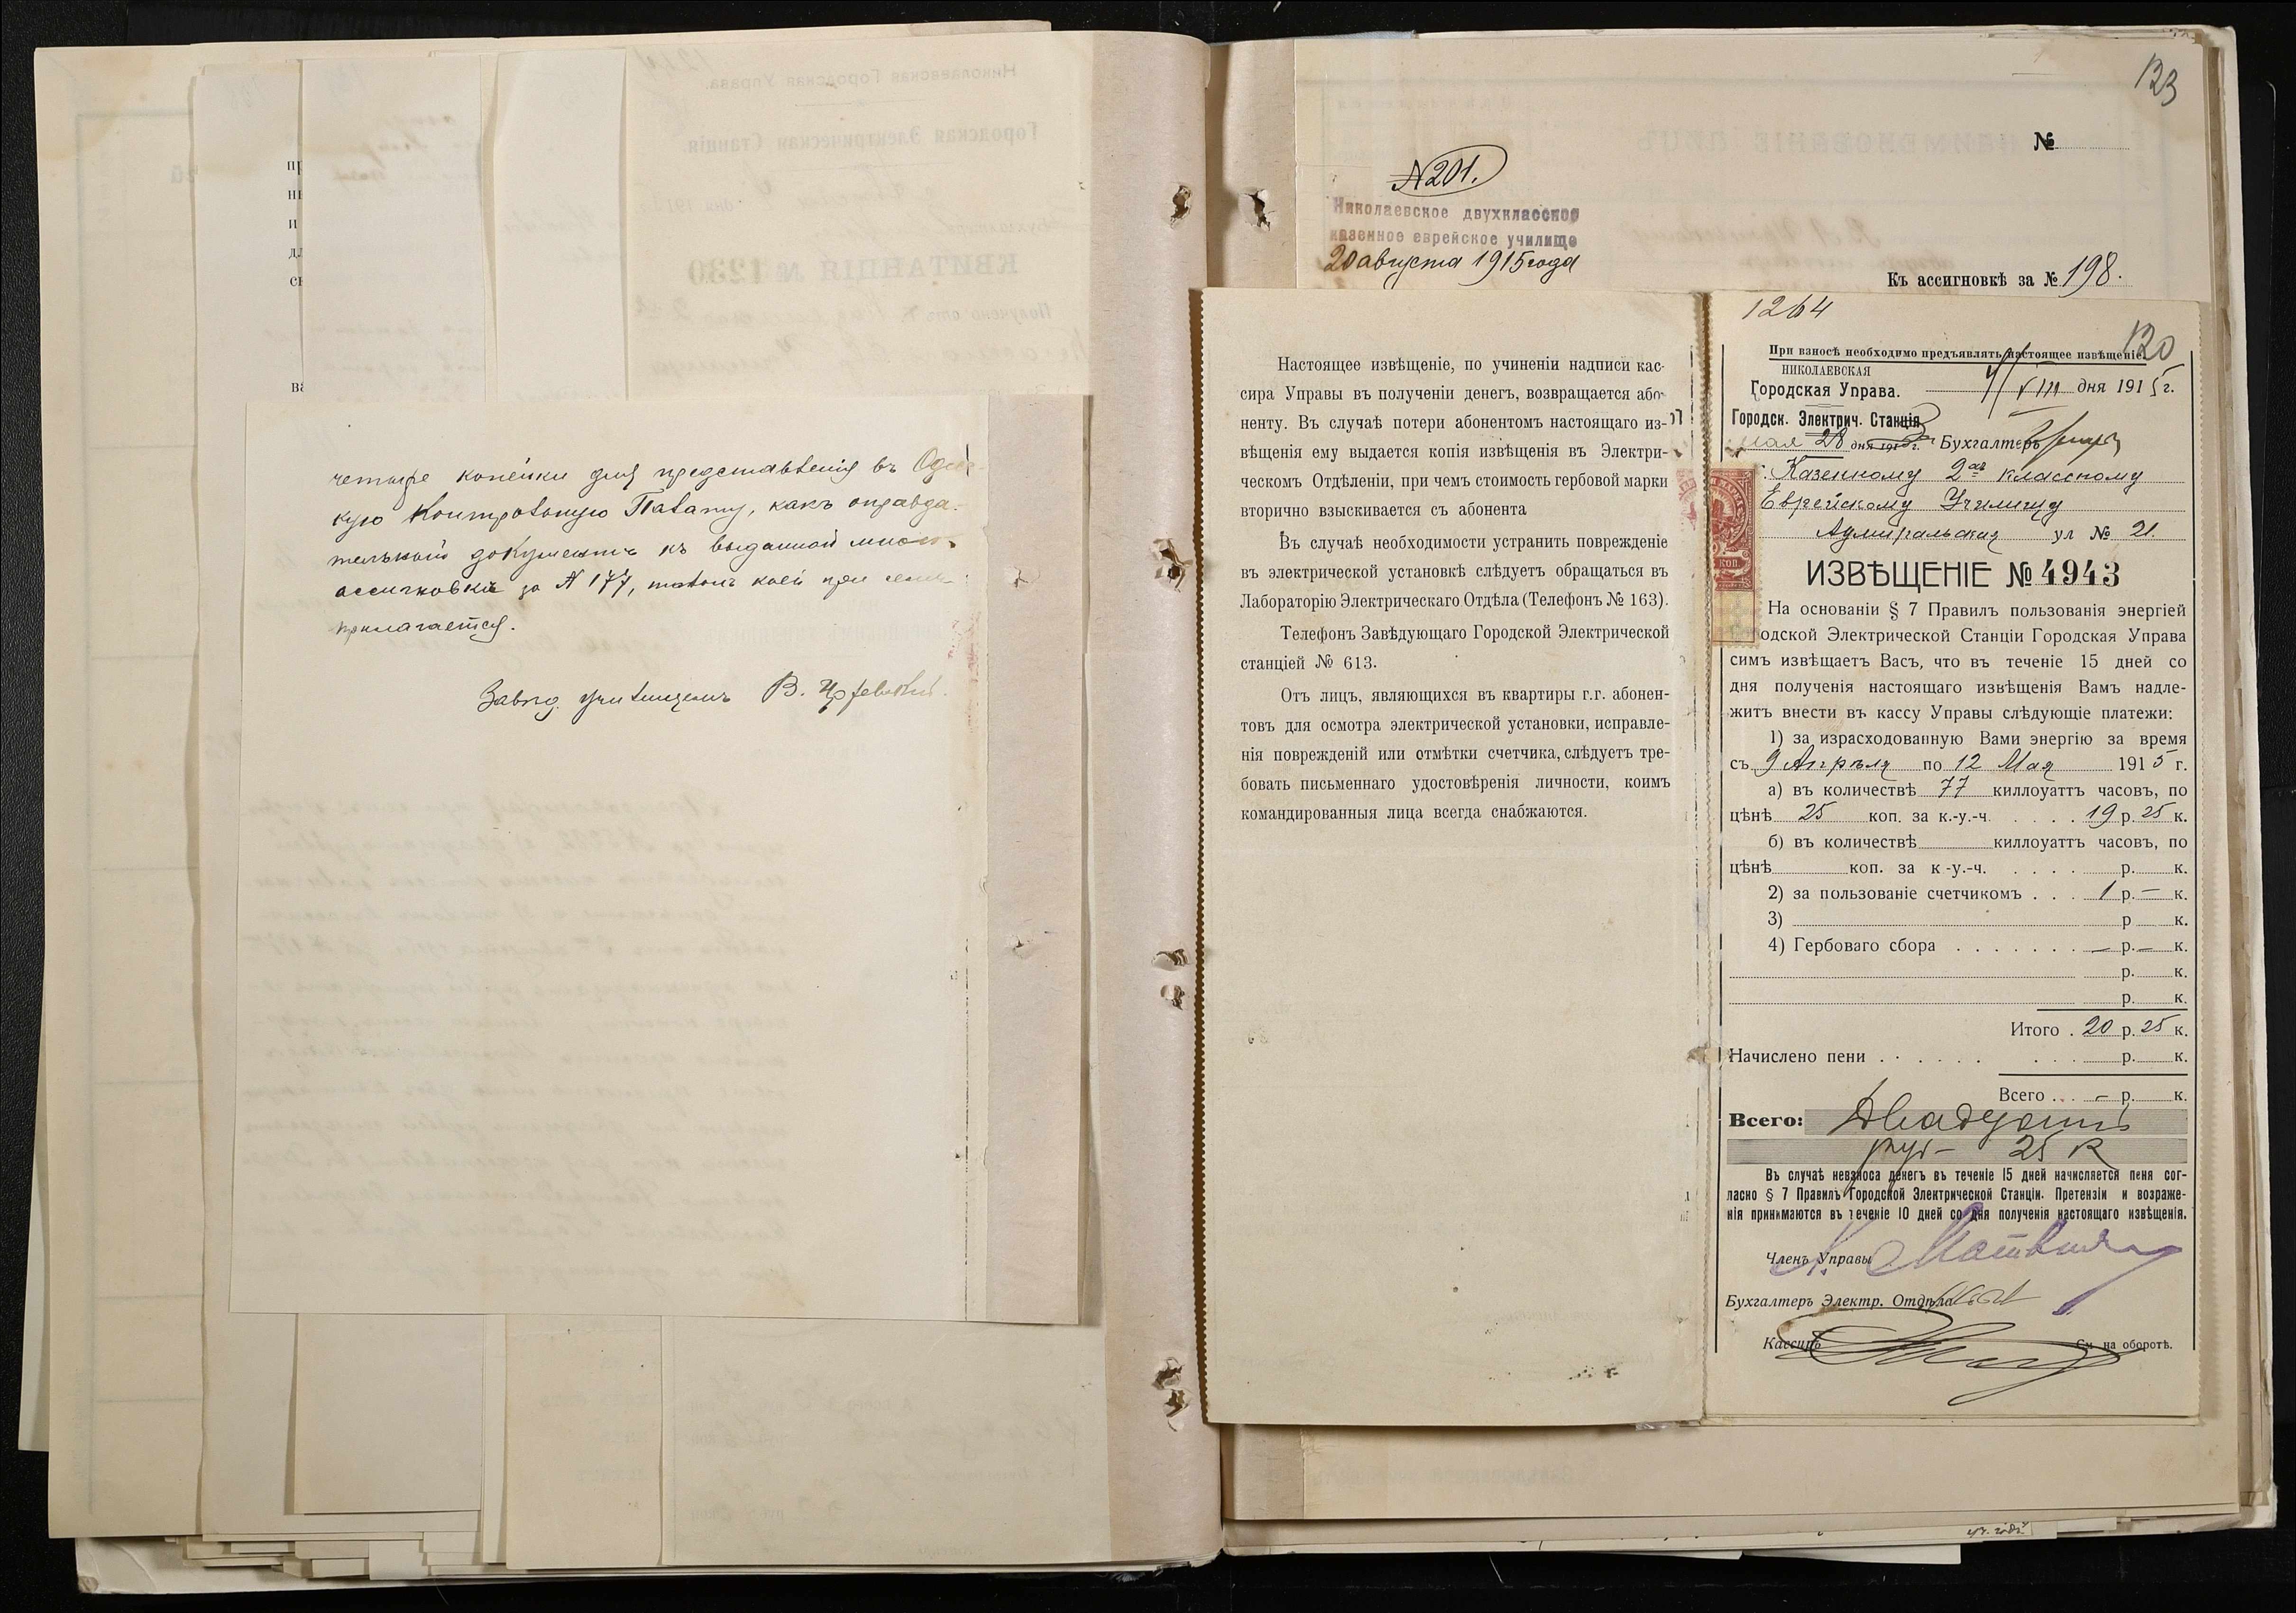 четыре копейки для представленія въ Одес-
кую Контрольную Палату, какъ оправда-
тельный документъ къ выданной мною
ассигновкѣ за № 177, талонъ коей при семъ
прилагается.
Завѣд. училищемъ В.
123
№
№ 201.
Николаевское двухклассное
казенное еврейское училище
20 августа 1915 года
Къ ассигновкѣ за № 198.
Настоящее извѣщеніе, по учиненіи надписи кас-
сира Управы въ полученіи денегъ, возвращается або-
ненту. Въ случаѣ потери абонентомъ настоящаго из-
вѣщенія ему выдается копія извѣщенія въ Электри-
ческомъ Отдѣленіи, при чемъ стоимость гербовой марки
вторично взыскивается съ абонента
Въ случаѣ необходимости устранить поврежденіе
въ электрической установкѣ слѣдуетъ обращаться въ
Лабораторію Электрическаго Отдѣла (Телефонъ № 163).
Телефонъ Завѣдующаго Городской Электрической
станціей № 613.
Отъ лицъ, являющихся въ квартиры г.г. абонен-
товъ для осмотра электрической установки, исправле-
нія поврежденій или отмѣтки счетчика, слѣдуетъ тре-
бовать письменнаго удостовѣренія личности, коимъ
командированныя лица всегда снабжаются.
1264
120
При взносѣ необходимо предъявлять настоящее извѣщеніе.
НИКОЛАЕВСКАЯ
Городская Управа. VIII дня 1915 г.
Городск. Электрич. Станція
мая 28 дня 191 г. Бухгалтеръ
Казенному 2хъ классному
Еврейскому Училищу
Адмиральская ул № 21.
ИЗВѢЩЕНІЕ № 4943
На основаніи § 7 Правилъ пользованія энергіей
одской Электрической Станціи Городская Управа
симъ извѣщаетъ Васъ, что въ теченіе 15 дней со
дня полученія настоящаго извѣщенія Вамъ надле-
житъ внести въ кассу Управы слѣдующіе платежи:
1) за израсходованную Вами энергію за время
съ 9 Апрѣля по 12 Мая 1915 г.
а) въ количествѣ 77 киллоуаттъ часовъ, по
цѣнѣ 25 коп. за к.-у.-ч. . . . . 19 р. 25 к.
б) въ количествѣ киллоуаттъ часовъ, по
цѣнѣ коп. за к-у.-ч. . . . . р. к.
2) за пользованіе счетчикомъ . . . 1 р. — к.
3) р к.
4) Гербоваго сбора . . . . . . . — р. — к.
р. к.
р. к.
Итого . 20 р. 25 к.
Начислено пени . . . . . . . . . р. к.
Всего . . . — р. к.
Всего: Двадцать
руб — 25 к
Въ случаѣ невзноса денегъ въ теченіе 15 дней начисляется пеня сог-
ласно § 7 Правилъ Городской Электрической Станціи. Претензіи и возраже-
нія принимаются въ теченіе 10 дней со дня полученія настоящаго извѣщенія.
Членъ Управы
Бухгалтеръ Электр. Отдѣла
Кассиръ См. на оборотѣ.